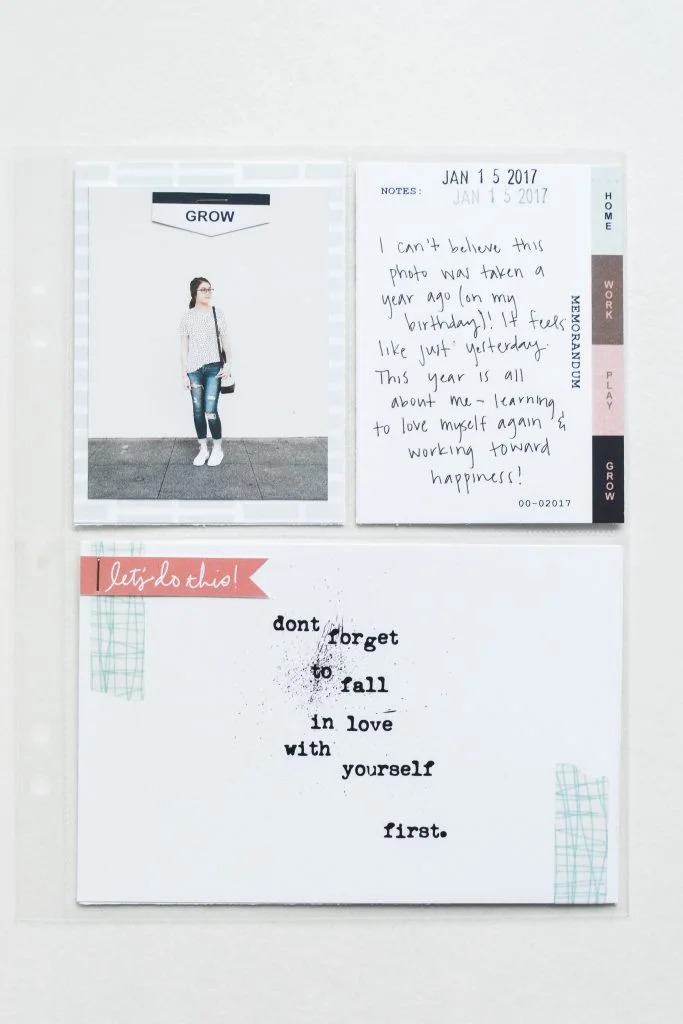 GROW
JAN 15 2017
NOTES: JAN 15 2017
I can't believe this
photo was taken a
year ago (on my
birthday)! It feels
like just yesterday.
This year is all
about me - learning
to love myself again &
working toward
happiness!
00-02017
MEMORANDUM
HOME
WORK
PLAY
GROW
let's do this!
dont
forget
to
fall
in love
with
yourself
first.